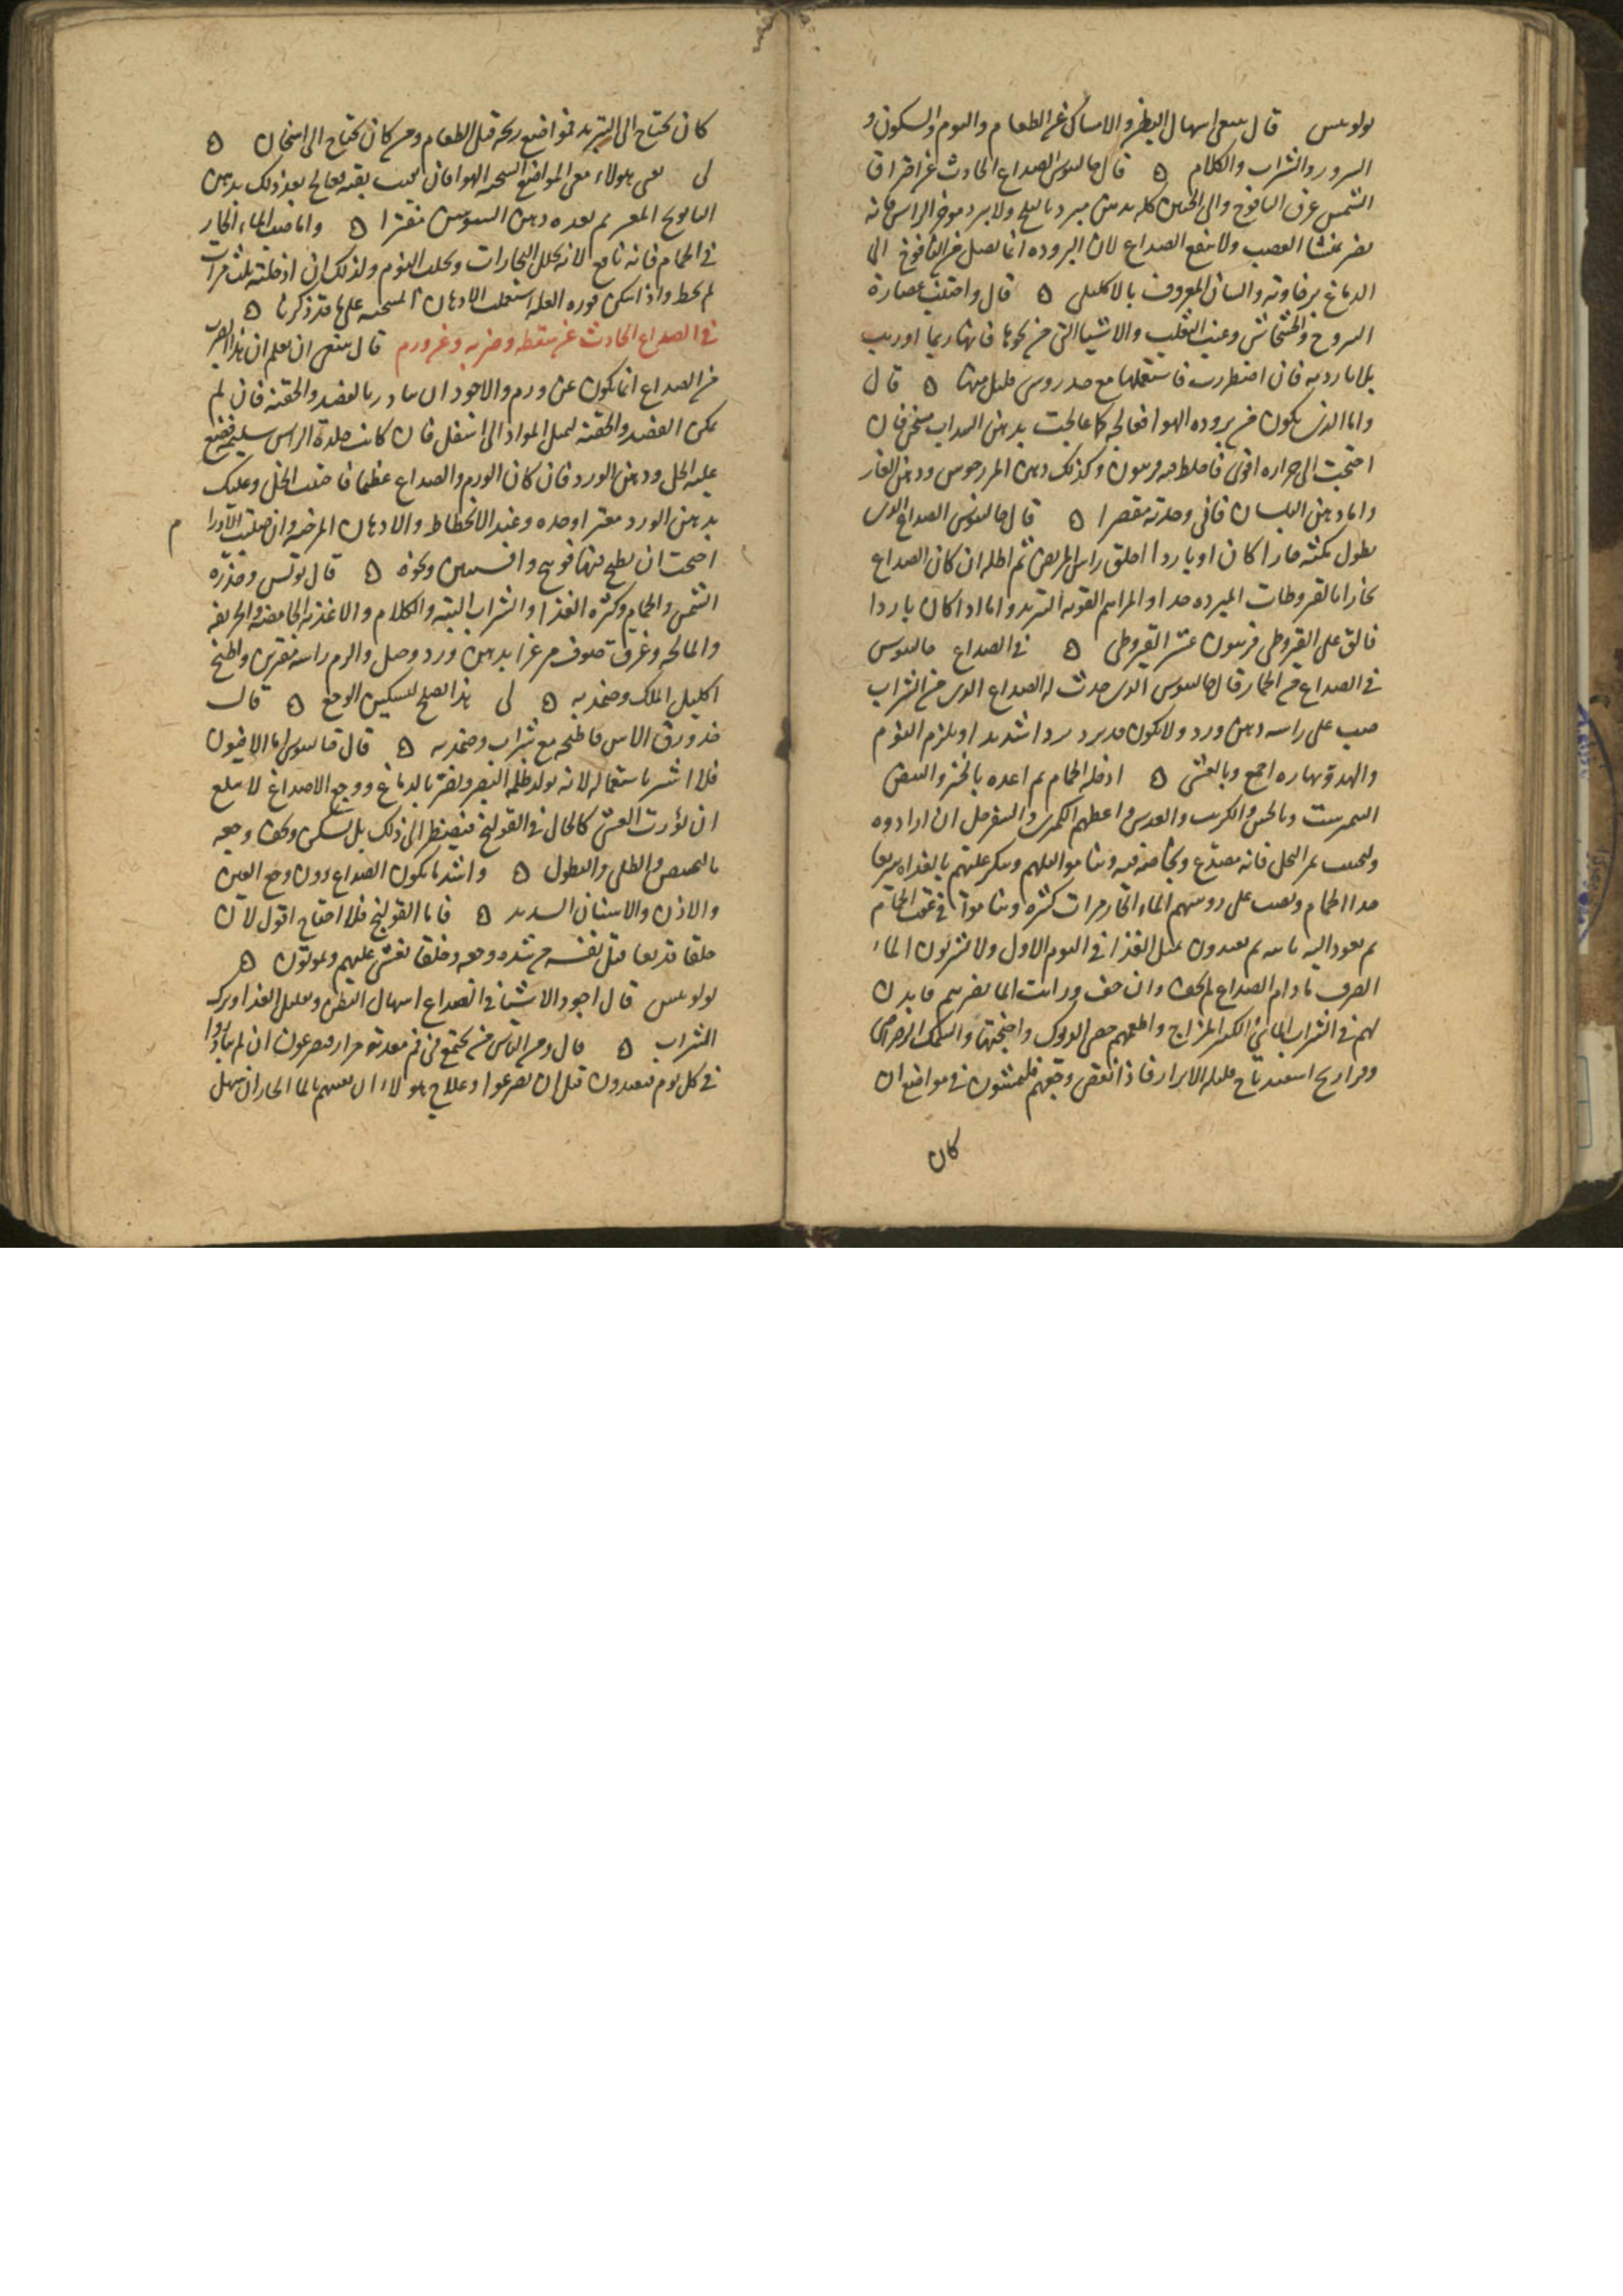 بولوبيس قال ينبغى اسهال البطن والامساك عن الطعام والنوم والسكون و
السرور والشراب والكلام ه قال جالينوس الصداع الحادث عن احراق
الشمس غرق اليافوخ والى الجبين كله بدهن مبرد بالثلج ولا يبرد موخر الراس فانه
يضر بمنشا العصب ولا ينفع الصداع لان البروده انما تصل من اليافوخ الى
الدماغ برخاوته والشان المعروف بالاكليلى ه قال واجتنب عصارة
اليبروح والخشخاش وعنب الثعلب والاشيا التى من نحوها فانها ربما اورثت
بلايا رديه فان اضطررت فاستعملها مع حذر وشى قليل منها ه قال
واما الذى يكون من بروده الهوا فعالجه كما عالجت بدهن السداب مسخن فان
احتجت الى حراره اقوى فاخلط معه فربيون وكذلك دهن المرزجوش ودهن الغار
واما دهن البلسان فانى وجدته مقصرا ه قال جالينوس الصداع الذى
يطول مكثه حارا كان او باردا احلق راس المريض ثم اطله ان كان الصداع
حارا بالقيروطات المبرده جدا والمراهم القويه التبريد واما اذا كان باردا
فالق على القيروطى فربيون عشر القيروطى ه فى الصداع جالينوس
فى الصداع من الخمار قال جالينوس الذى حدث له الصداع الذى من الشراب
صب على راسه دهن ورد ولا يكون قد برد بردا شديدا ويلزم النوم
والهدو نهاره اجمع وبالعشى ه ادخله الحمام ثم اغذه بالخبز والبيض
النيمرشت وبالخس والكرنب والعدس واعطهم الكمثرى والسفرجل ان ارادوه
وليجتنب ثمر النخل فانه مصدع وبخاصه فيه
جدا الحمام ويصب على روسهم الماء الحار مرات كثيره ويناموا فى عقب الحمام
ثم يعود اليه ثانيه ثم يغتذون بمثل الغذا فى اليوم الاول ولا يشربون الماء
الصرف ما دام الصداع لم يخف وان خف ورايت الما يضر بهم فاذن
لهم فى الشراب المائى الكثير المزاج واطعمهم خصى الديوك واجنحتها والسمك الرضراضى
وفراريج اسفيدباج قليله الابزار فاذا انقضى وجعهم فليمشون فى مواضع ان
كان
كان يحتاج الى التبريد فمواضع ريحه قبل الطعام ومن كان يحتاج الى اسخان ه
لى يعنى بهولاء يعنى المواضع السخنه الهوا فان بقيت بقيه يعالج بعد ذلك بدهن
البابونج المفتر ثم بعده دهن السوسن مفترا ه واما صب الماء الحار
فى الحمام فانه نافع الانه يحلل البخارات ويجلب النوم ولذلك ان ادخلته ثلث مرات
لم يخط واذا سكن فوره العله استعملت الادهان المسخنه على ما قد ذكرنا ه
فى الصداع الحادث عن سقطه وضربه وعن ورم قال ينبغى ان يعلم ان هذا الضرب
من الصداع انما يكون عن ورم والاجود ان يبادر بالفصد والحقنه فان لم
يمكن الفصد والحقنه لتميل المواد الى اسفل فان كانت جلدة الراس سليمه فضع
عليه الخل ودهن الورد فان كان الورم والصداع عظيما فاجتنب الخل وعليك
بدهن الورد مفترا وحده وعند الانحطاط والادهان المرخيه وان صلبت الاورا م
احتجت ان يطبخ فيها فودنج وافسنتين ونحوه ه قال بولس وحذره
الشمس والحمام وكثره الغذا والشراب البته والكلام والاغذيه الحامضه والحريفه
والمالحه وغرق صوف مرغزا بدهن ورد وخل والزم راسه مفترين واطبخ
اكليل الملك وضمد به ه لى هذا يصلح لتسكين الوجع ه قال
خذ ورق الاس فاطبخه مع شراب وضمد به ه قال جالينوس اما الافيون
فلا اشير باستعماله لانه يولد ظلمه البصر ويضر بالدماغ ووجع الاصداغ لا يبلغ
ان يورث الغشى كالحال فى القولنج فيضطر الى ذلك بل يسكن ويخف وجعه
بالتمصيص والطلى والنطول ه واشد ما يكون الصداع دون وجع العين
والاذن والاسنان الشديد ه فاما القولنج فلا احتاج اقول لان
خلقا قد يما قتل نفسه من شده وجعه وخلقا يغشى عليهم ويموتون ه
بولوبيس قال اجود الاشيا فى الصداع اسهال البطن وتقليل الغذا وترك
الشراب ه قال ومن الناس من يجتمع فى فم معدته مرار فيصرعون ان لم يبادروا
فى كل يوم فيغتذون قبل ان يصرعوا وعلاج هولاء ان تقيهم بالما الحار ان سهل